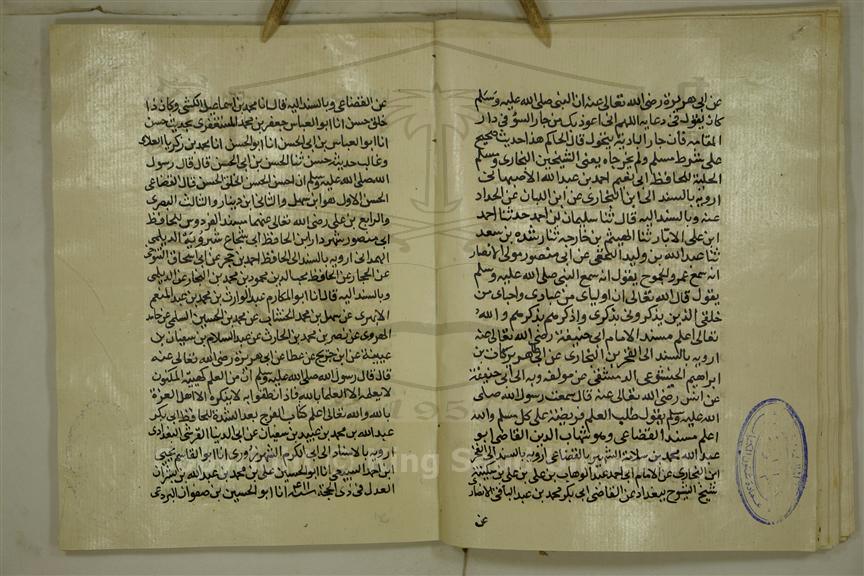 عن ابي هريرة رضي الله تعالى عنه ان النبي صلى الله عليه وسلم
كان يقول في دعايه اللهم اني اعوذ بك من جار السوء في دار
المقامة فان جار البادية يتحول قال الحاكم هذا حديث صحيح
على شرط مسلم ولم يخرجاه يعني الشيخين البخاري ومسلم
الحلية للحافظ ابي نعيم احمد بن عبد الله الاصبهاني
ارويه بالسند الى ابن البخاري عن ابن اللبان عن الحداد
عنه وبالسند اليه قال ثنا سليمان بن احمد حدثنا احمد
ابن علي الابار ثنا الهيثم بن خارجه ثنا رشده بن سعد
ثنا عبد الله بن وليد عن ابي منصور مولى الانصار
انه سمع عمرو الجموح يقول انه سمع النبي صلى الله عليه وسلم
يقول قال الله تعالى ان اولياي من عبادي واحباي من
خلقي الذين يذكروني بذكري واذكرهم بذكرهم والله
تعالى اعلم مسند الامام ابي حنيفة رضي الله تعالى عنه
ارويه بالسند الى الفخر بن البخاري عن ابي طاهر بركات بن
ابراهيم الخشوعي الدمشقي عن مولفه وبه الى ابي حنيفة
عن انس رضي الله تعالى عنه قال سمعت رسول الله صلى
الله عليه وسلم يقول طلب العلم فريضة على كل مسلم والله
اعلم مسند القضاعي وهو شهاب الدين القاضي ابو
عبد الله محمد بن سلامة الشهير بالقضاعي ارويه بالسند الى الفخر
ابن البخاري عن الامام ابي احمد عبد الوهاب بن علي بن علي بن سكينة
شيخ الشيوخ ببغداد عن القاضي ابي بكر محمد بن عبد الباقي الانصاري
عن
عن القضاعي وبالسند اليه قال انا محمد بن اسماعيل الكشي وكان ذا
خلق حسن انا ابو العباس جعفر بن محمد المستغفري بحديث حسن
انا ابو العباس بن ابي الحسن انا ابو الحسن انا محمد بن زكريا العلاي
وغالب حديثه حسن ثنا الحسن بن ابي الحسن قال قال رسول
الله صلى الله عليه وسلم ان احسن الحسن الخلق الحسن قال القضاعي
الحسن الاول هو ابن سهل والثاني ابن دينار والثالث البصري
والرابع بن علي رضي الله تعالى عنهما مسند الفردوس للحافظ
ابي منصور شهردار ابن الحافظ ابي شجاع شيرويه الديلمي
الهمداني ارويه بالسند الى الحافظ احمد بن حجر عن ابي اسحاق التنوخي
عن الحجار عن الحافظ محب الدين محمود بن محمد بن النجار عن الديلمي
وبالسند اليه قال انا ابو المكارم عبد الوارث بن محمد بن عبد المنعم
الابهري عن سهل بن محمد الخشاب عن محمد بن الحسين السلمي عن حامد
الهروي عن نصر بن محمد بن الحارث عن عبد السلام بن سفيان بن
عيينة عن ابن جريج عن عطا عن ابي هريرة رضي الله تعالى عنه
قال قال رسول الله صلى الله عليه وسلم ان من العلم كهيئة المكنون
لا يعلمه الا العلما بالله فاذا نطقوا به لا ينكره الا اهل الغرة
بالله والله تعالى اعلم كتاب الفرج بعد الشدة للحافظ ابي بكر
عبد الله بن محمد بن عبيد بن سفيان عن ابي الدنيا القرشي البغدادي
ارويه بالاسناد الى ابي الكرم الشهرزوري انا ابو القاسم يحيى
ابن احمد السبيعي انا ابو الحسين علي بن محمد بن عبد الله بن بشران
العدل في ذي الحجة انا ابو الحسين بن صفوان البردعي